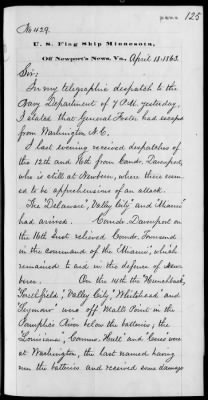 125
No. 429.
U. S. Flag Ship Minnesota,
Off Newport's News, Va., April 18. 1863.
Sir:
In my telegraphic despatch to the
Navy Department of 7 P.M. yesterday,
I stated that General Foster had escaped
from Washington N.C.
I last evening received despatches of
the 12th and 16th from Comdr. Davenport,
who is still at Newbern, where there seem-
ed to be apprehensions of an attack.
The "Delaware", "Valley City" and "Miami"
had arrived. Comdr. Davenport on
the 16th Inst relieved Comdr. Townsend
in the command of the "Miami", which
remained to and in the defence of New-
bern. On the 14th the "Hunchback",
"Southfield", "Valley City," "Whitehead" and
Seymour were off Malls Point in the
Pamplico River below the batteries; the
"Louisiana", "Commo. Hull" and "Ceres" were
at Washington, the last named having
run the batteries and received some damage